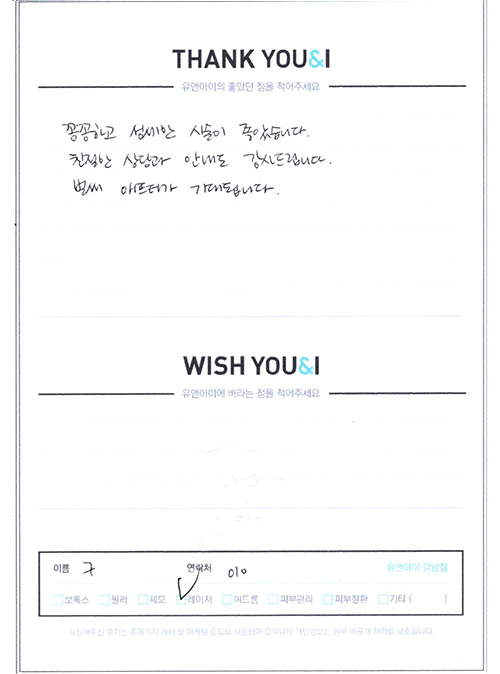 THANK YOU&I
유앤아이의 좋았던 점을 적어주세요
꼼꼼하고 섬세한 시술이 좋았습니다.
친절한 상담과 안내도 감사드립니다.
벌써 애프터가 기대됩니다.
WISH YOU&I
유앤아이에 바라는 점을 적어주세요
이름 구 연락처 010 유앤아이 강남점
보톡스 필러 제모 레이저 여드름 피부관리 피부질환 기타 ( )
작성해주신 후기는 홈페이지 게재 및 마케팅 용도로 사용되며 고객님의 개인정보는 일부 비공개 처리로 보호됩니다.